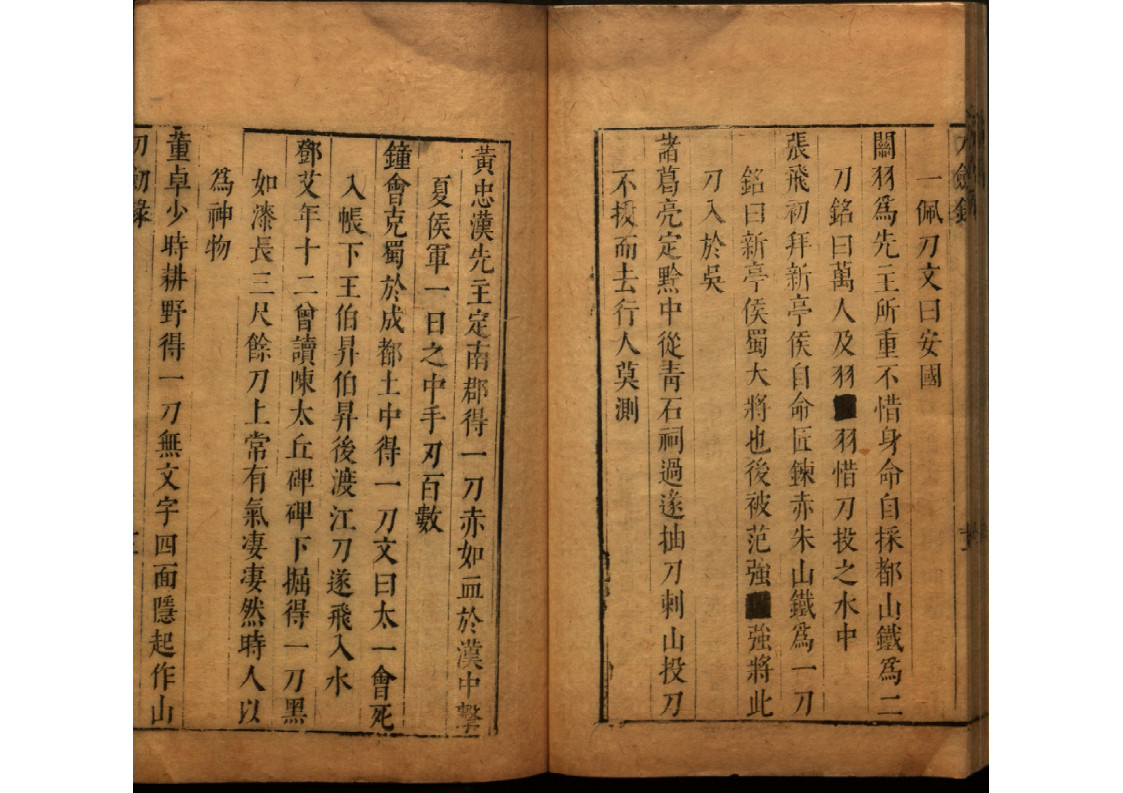 一佩刀文曰安國
關羽爲先主所重不惜身命自採都山鐵爲二
刀銘曰萬人及羽羽惜刀投之水中
張飛初拜新亭侯自命匠鍊赤朱山鐵爲一刀
銘曰新亭侯蜀大將也後被范強強將此
刀入於吳
諸葛亮定黔中從靑石祠過遂抽刀刺山投刀
不拔而去行人莫測
黃忠漢先主定南郡得一刀赤如血於漢中擊
夏侯軍一日之中手刃百數
鐘會克蜀於成都土中得一刀文曰太一會死
入帳下王伯昇伯昇後渡江刀遂飛入水
鄧艾年十二曾讀陳太丘碑碑下掘得一刀黑
如漆長三尺餘刀上常有氣凄凄然時人以
爲神物
董卓少時耕野得一刀無文字四面隱起作山